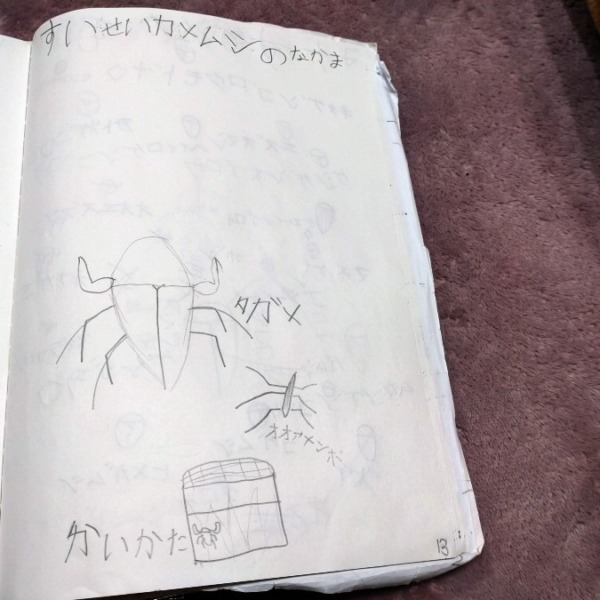 すいせいカメムシのなかま
タガメ
オオアメンボ
かいかた
13